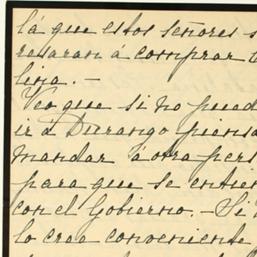 lá que estos señores s
resaran á comprar
lina. -
Veo que si no pued
ir á Durango piensa
mandar á otra pers
para que se entien
con el Gobierno. - Si
lo crea conveniente